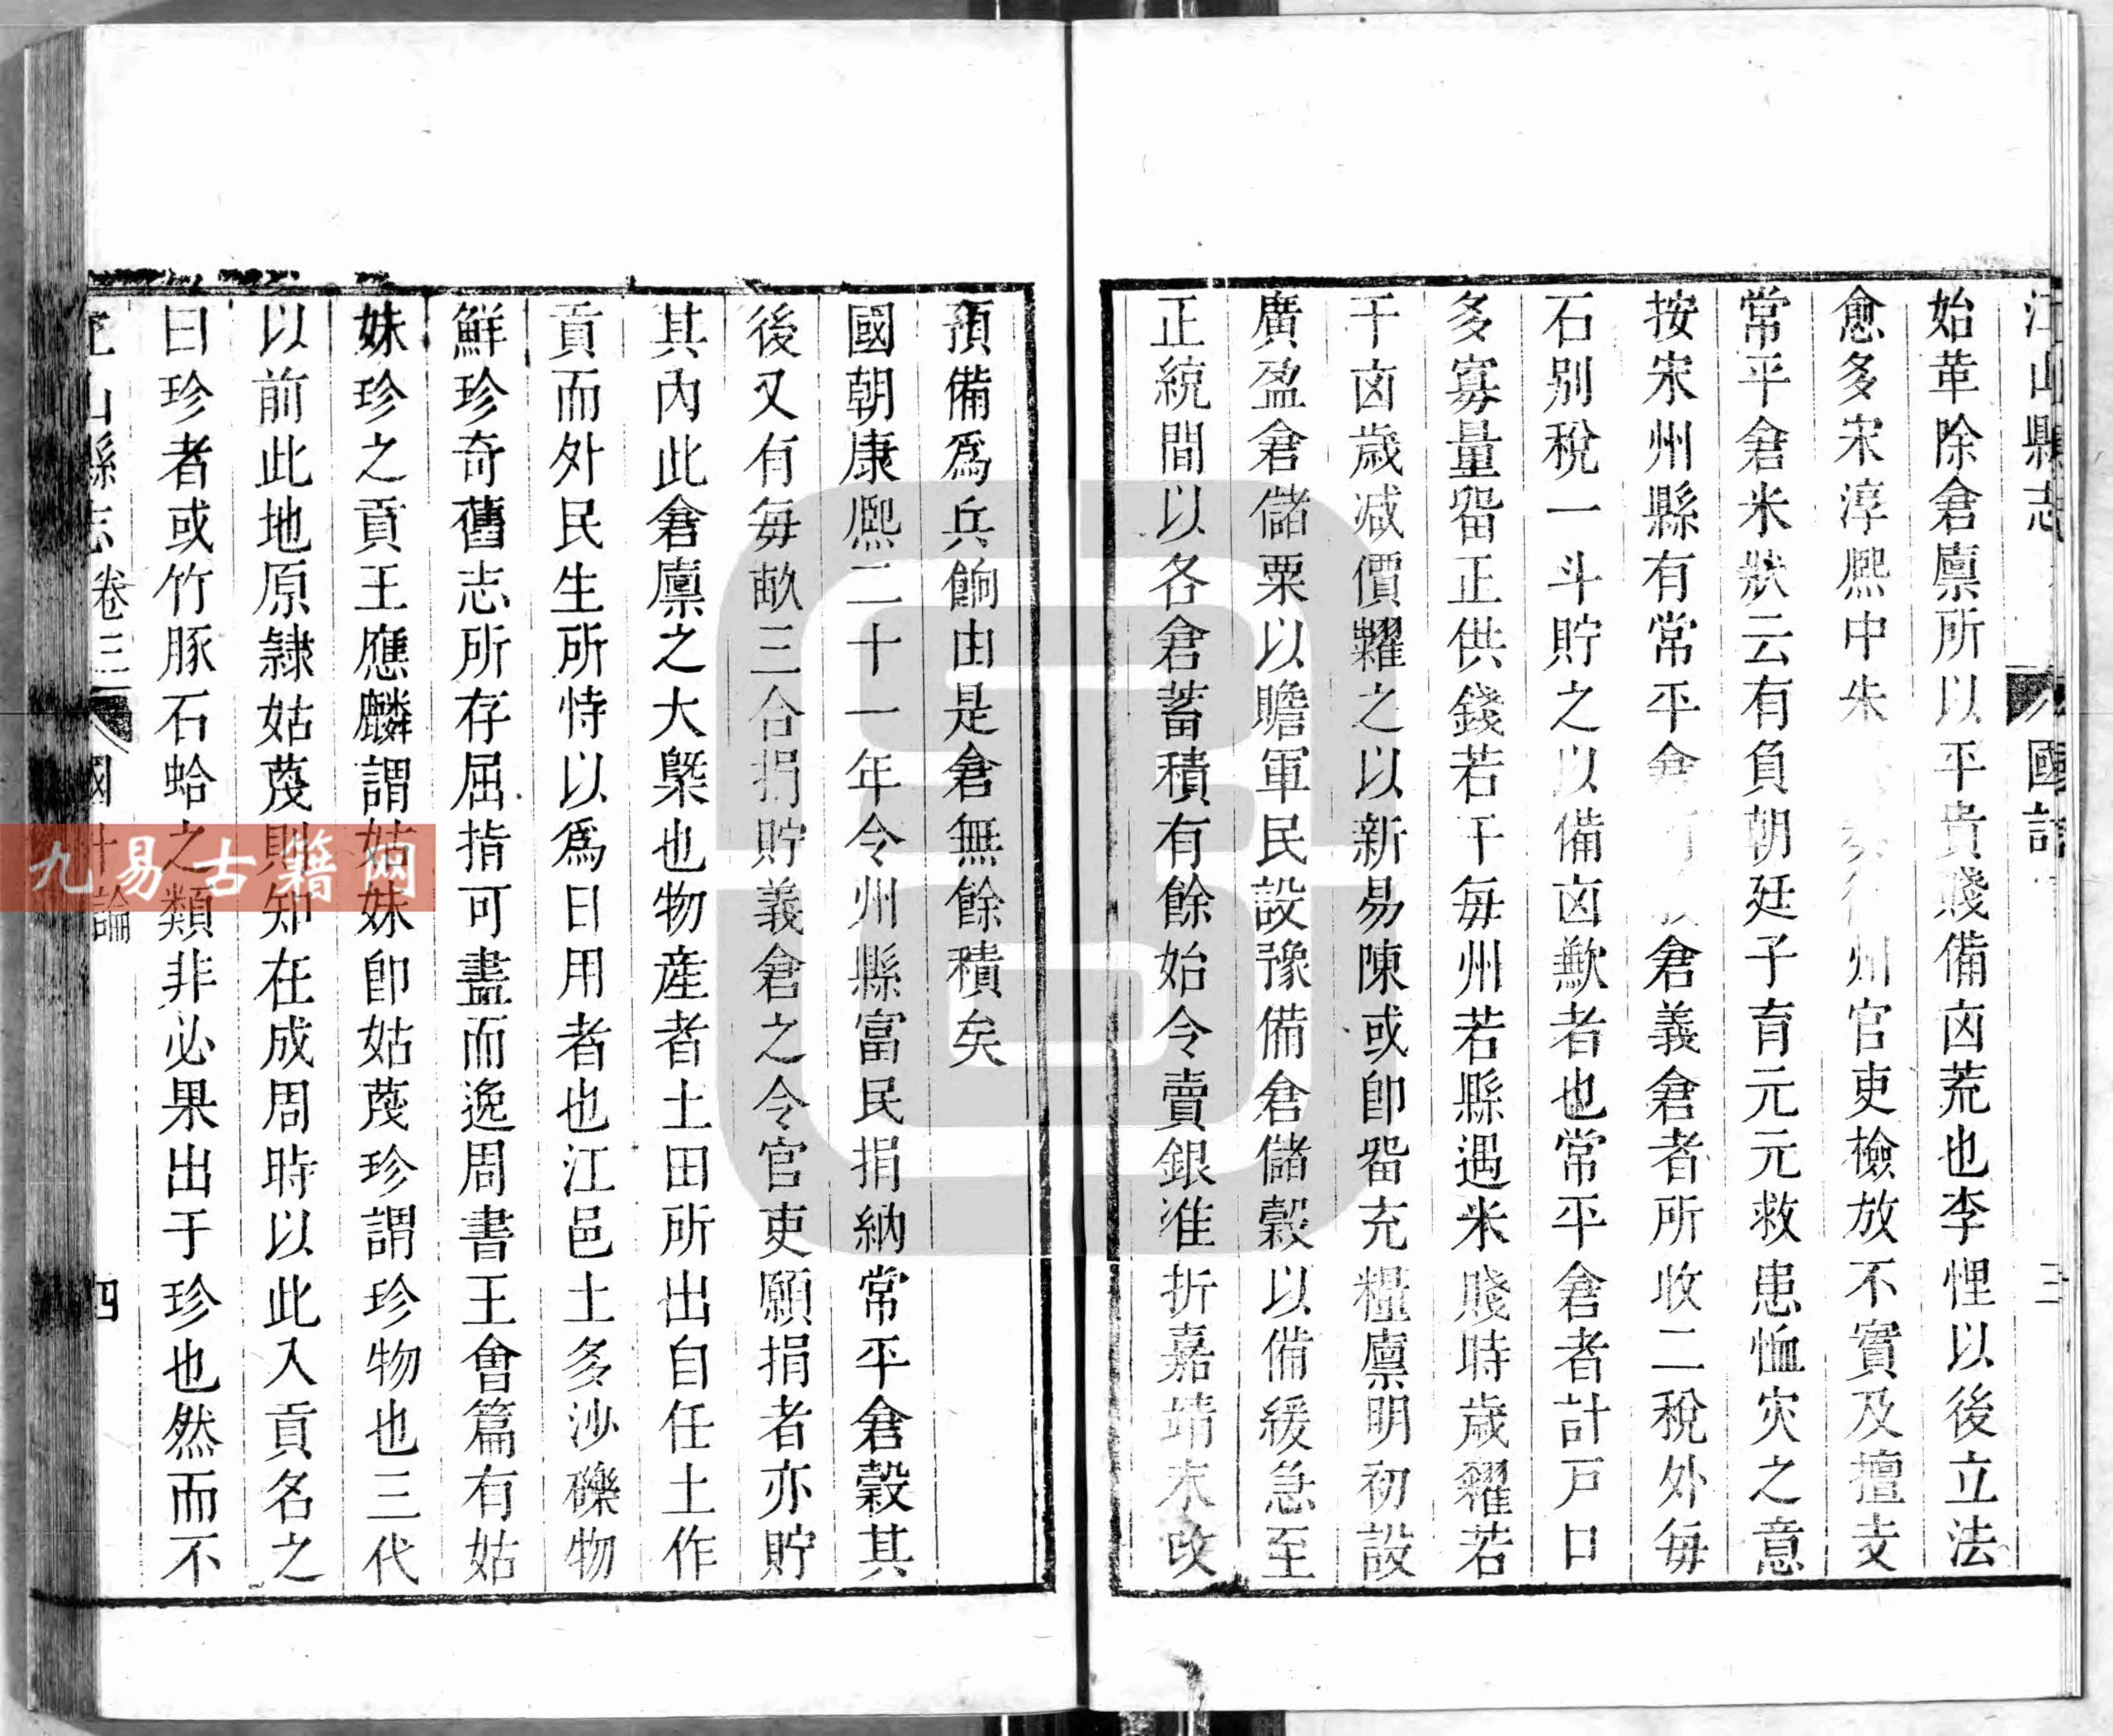 江山縣志 國計 三
始革除倉廪所以平貴賤備凶荒也李悝以後立法
愈多宋淳熙中朱 州官吏檢放不實及擅支
常平倉米狀云有負朝廷子育元元救患恤灾之意
按宋州縣有常平倉 倉義倉者所收二稅外每
石别稅一斗貯之以備凶歉者也常平倉者計戸口
多寡量畱正供錢若干每州若縣遇米賤時歲糴若
干凶歲减價糶之以新易陳或卽畱充糧廪明初設
廣盈倉儲粟以贍軍民設豫備倉儲穀以備緩急至
正統間以各倉蓄積有餘始令賣銀准折嘉靖末改
預備爲兵餉由是倉無餘積矣
國朝康熙二十一年令州縣富民捐納常平倉穀其
後又有每畝三合捐貯義倉之令官吏願捐者亦貯
其內此倉廪之大槩也物產者土田所出自任土作
貢而外民生所恃以爲日用者也江邑土多沙礫物
鮮珍奇舊志所存屈指可盡而逸周書王會篇有姑
妹珍之貢王應麟謂姑妹卽姑蔑珍謂珍物也三代
以前此地原隸姑蔑則知在成周時以此入貢名之
曰珍者或竹豚石蛤之類非必果出于珍也然而不
江山縣志 卷三 國計論 四
九易古籍网